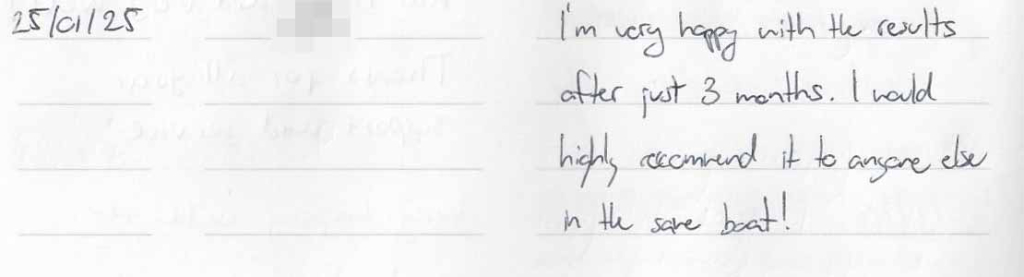 25/01/25
I'm very happy with the results
after just 3 months. I would
highly recommend it to anyone else
in the same boat!